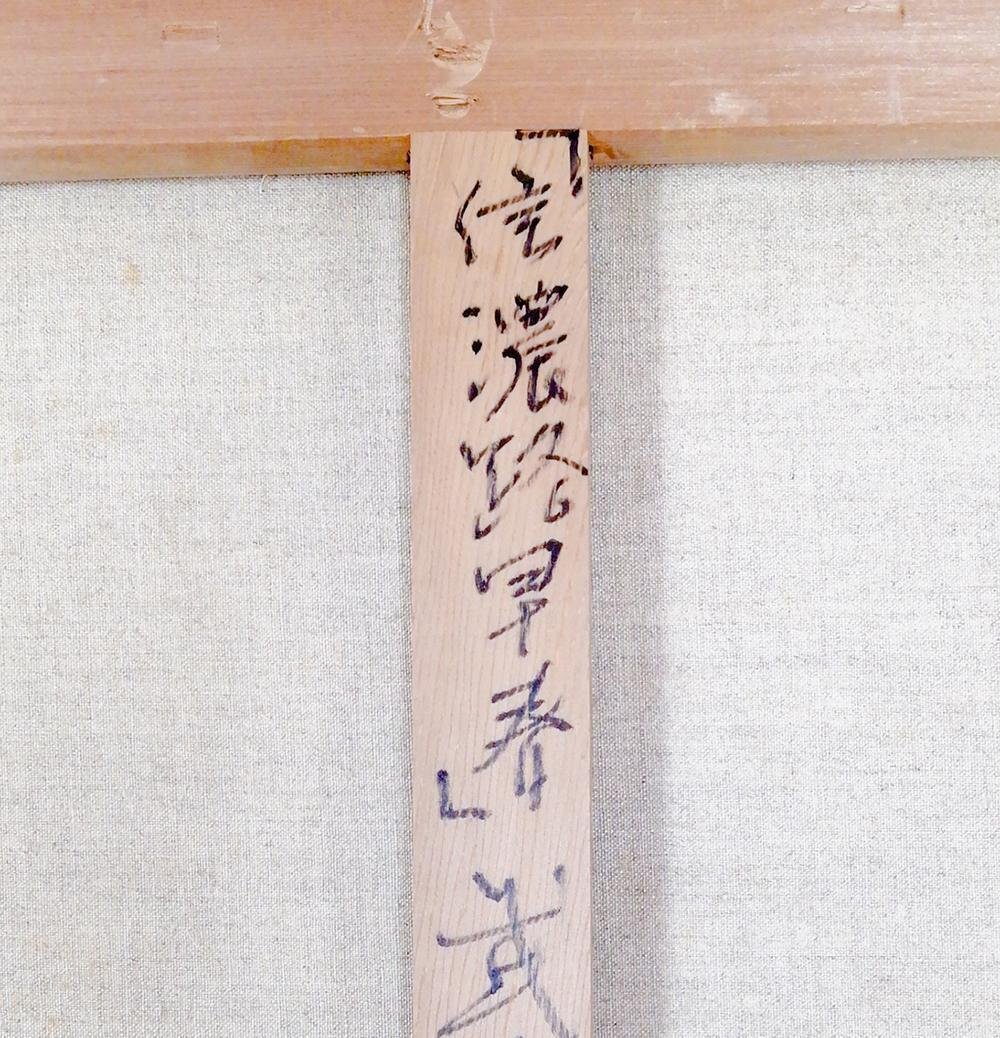 「信濃路早春」